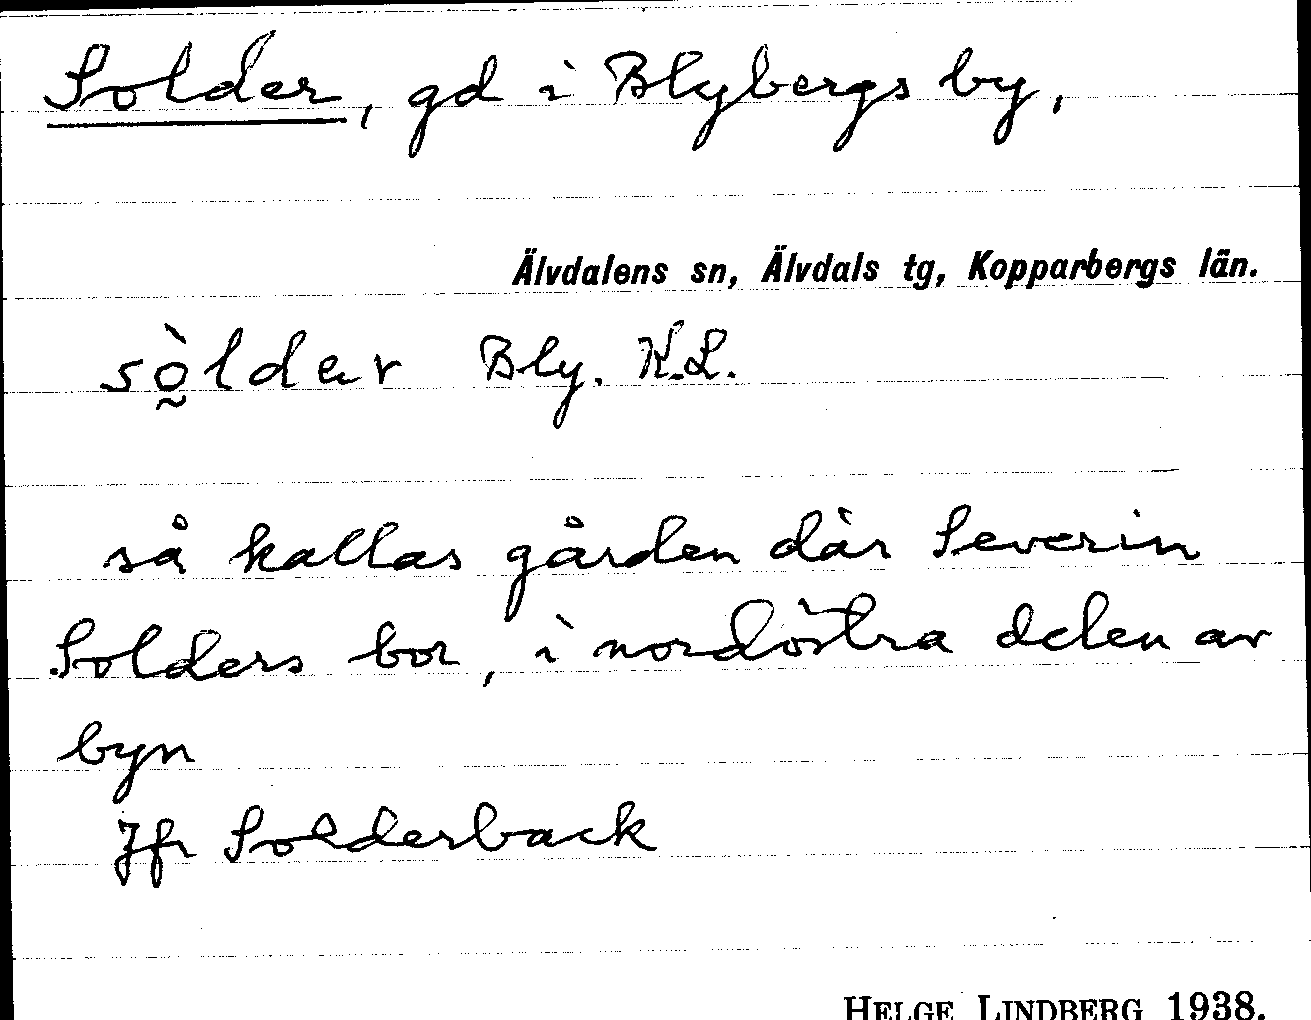 Solder, gd i Blybergs by,
Älvdalens sn, Älvdals tg, Kopparbergs län.
sò̰ldær Bly. K.L.
så kallas gården där Severin
Solders bor, i nordöstra delen av
byn
Jfr Solderback
HELGE LINDBERG 1938.